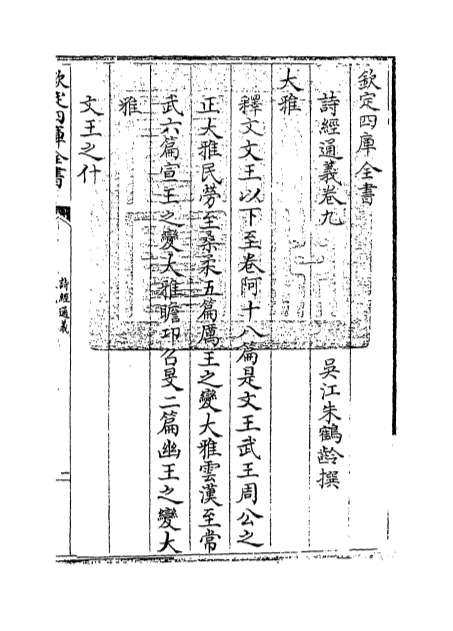 欽定四庫全書
詩經通義卷九
吳江朱鶴齡撰
大雅
釋文文王以下至卷阿十八篇是文王武王周公之
正大雅民勞至桑柔五篇厲王之變大雅雲漢至常
武六篇宣王之變大雅瞻卬召旻二篇幽王之變大
雅
文王之什
欽定四庫全書
詩經通義